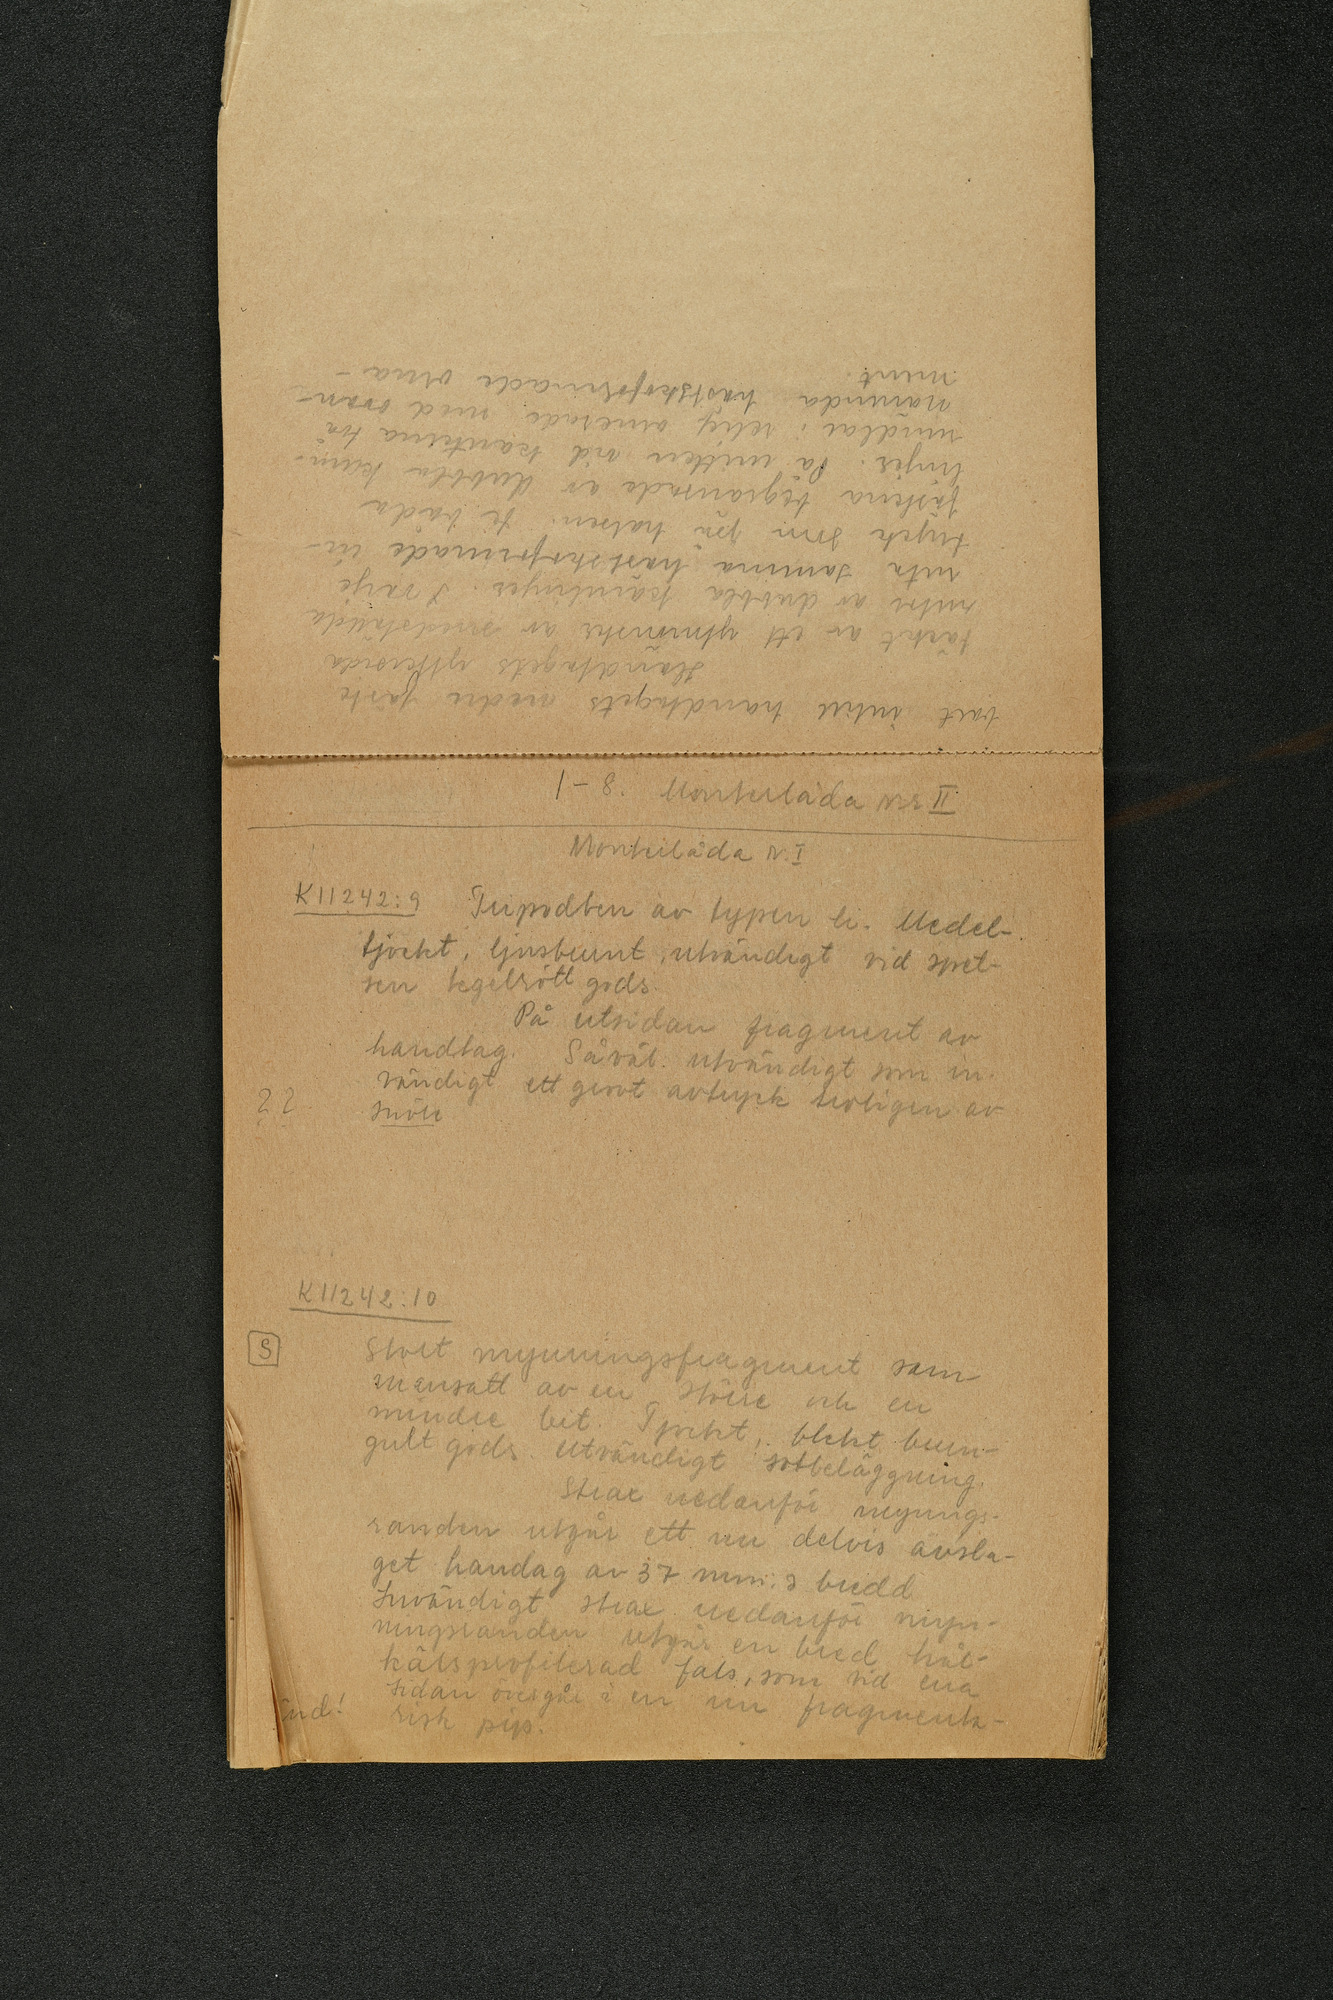 vart intill handtagets nedre fäste
Handtagets ytteryta
täckt av ett ytmönster av snedställda
av dubbla kamlinjer. I varje
ruta samma hästskoformade in-
tryck som på halsen. Ti båda
fästena begränsade av dubbla kam-
linjer. På mitten vid kanterna två
nudlar i relief ornerade med ovan-
nämnda hästskoformade orna-
ment.
1-8. Monterlåda nr II
Monterlåda N. I
K11242:9 Tripodben av typen li. Medel-
tjockt, ljusbrunt, utvändigt vid spet-
sen tegelrött gods.
På utsidan fragment av
handtag. Såväl utvändigt som in-
vändigt ett grovt avtryck troligen av
snöre
22
K11242:10
S
Stort mynningsfragment sam-
mansatt av en större och en
mindre bit. Tjockt, blekt brun-
gult gods. Utvändigt sotbeläggning.
Strax nedanför mynnings-
randen utgår ett nu delvis avsla-
get handag av 37 mm:s bredd
Invändigt strax nedanför myn-
ningsranden utgår en bred hål-
kälsprofilerad fals, som vid ena
sidan övergår i en nu fragmenta-
risk pip.
ind!